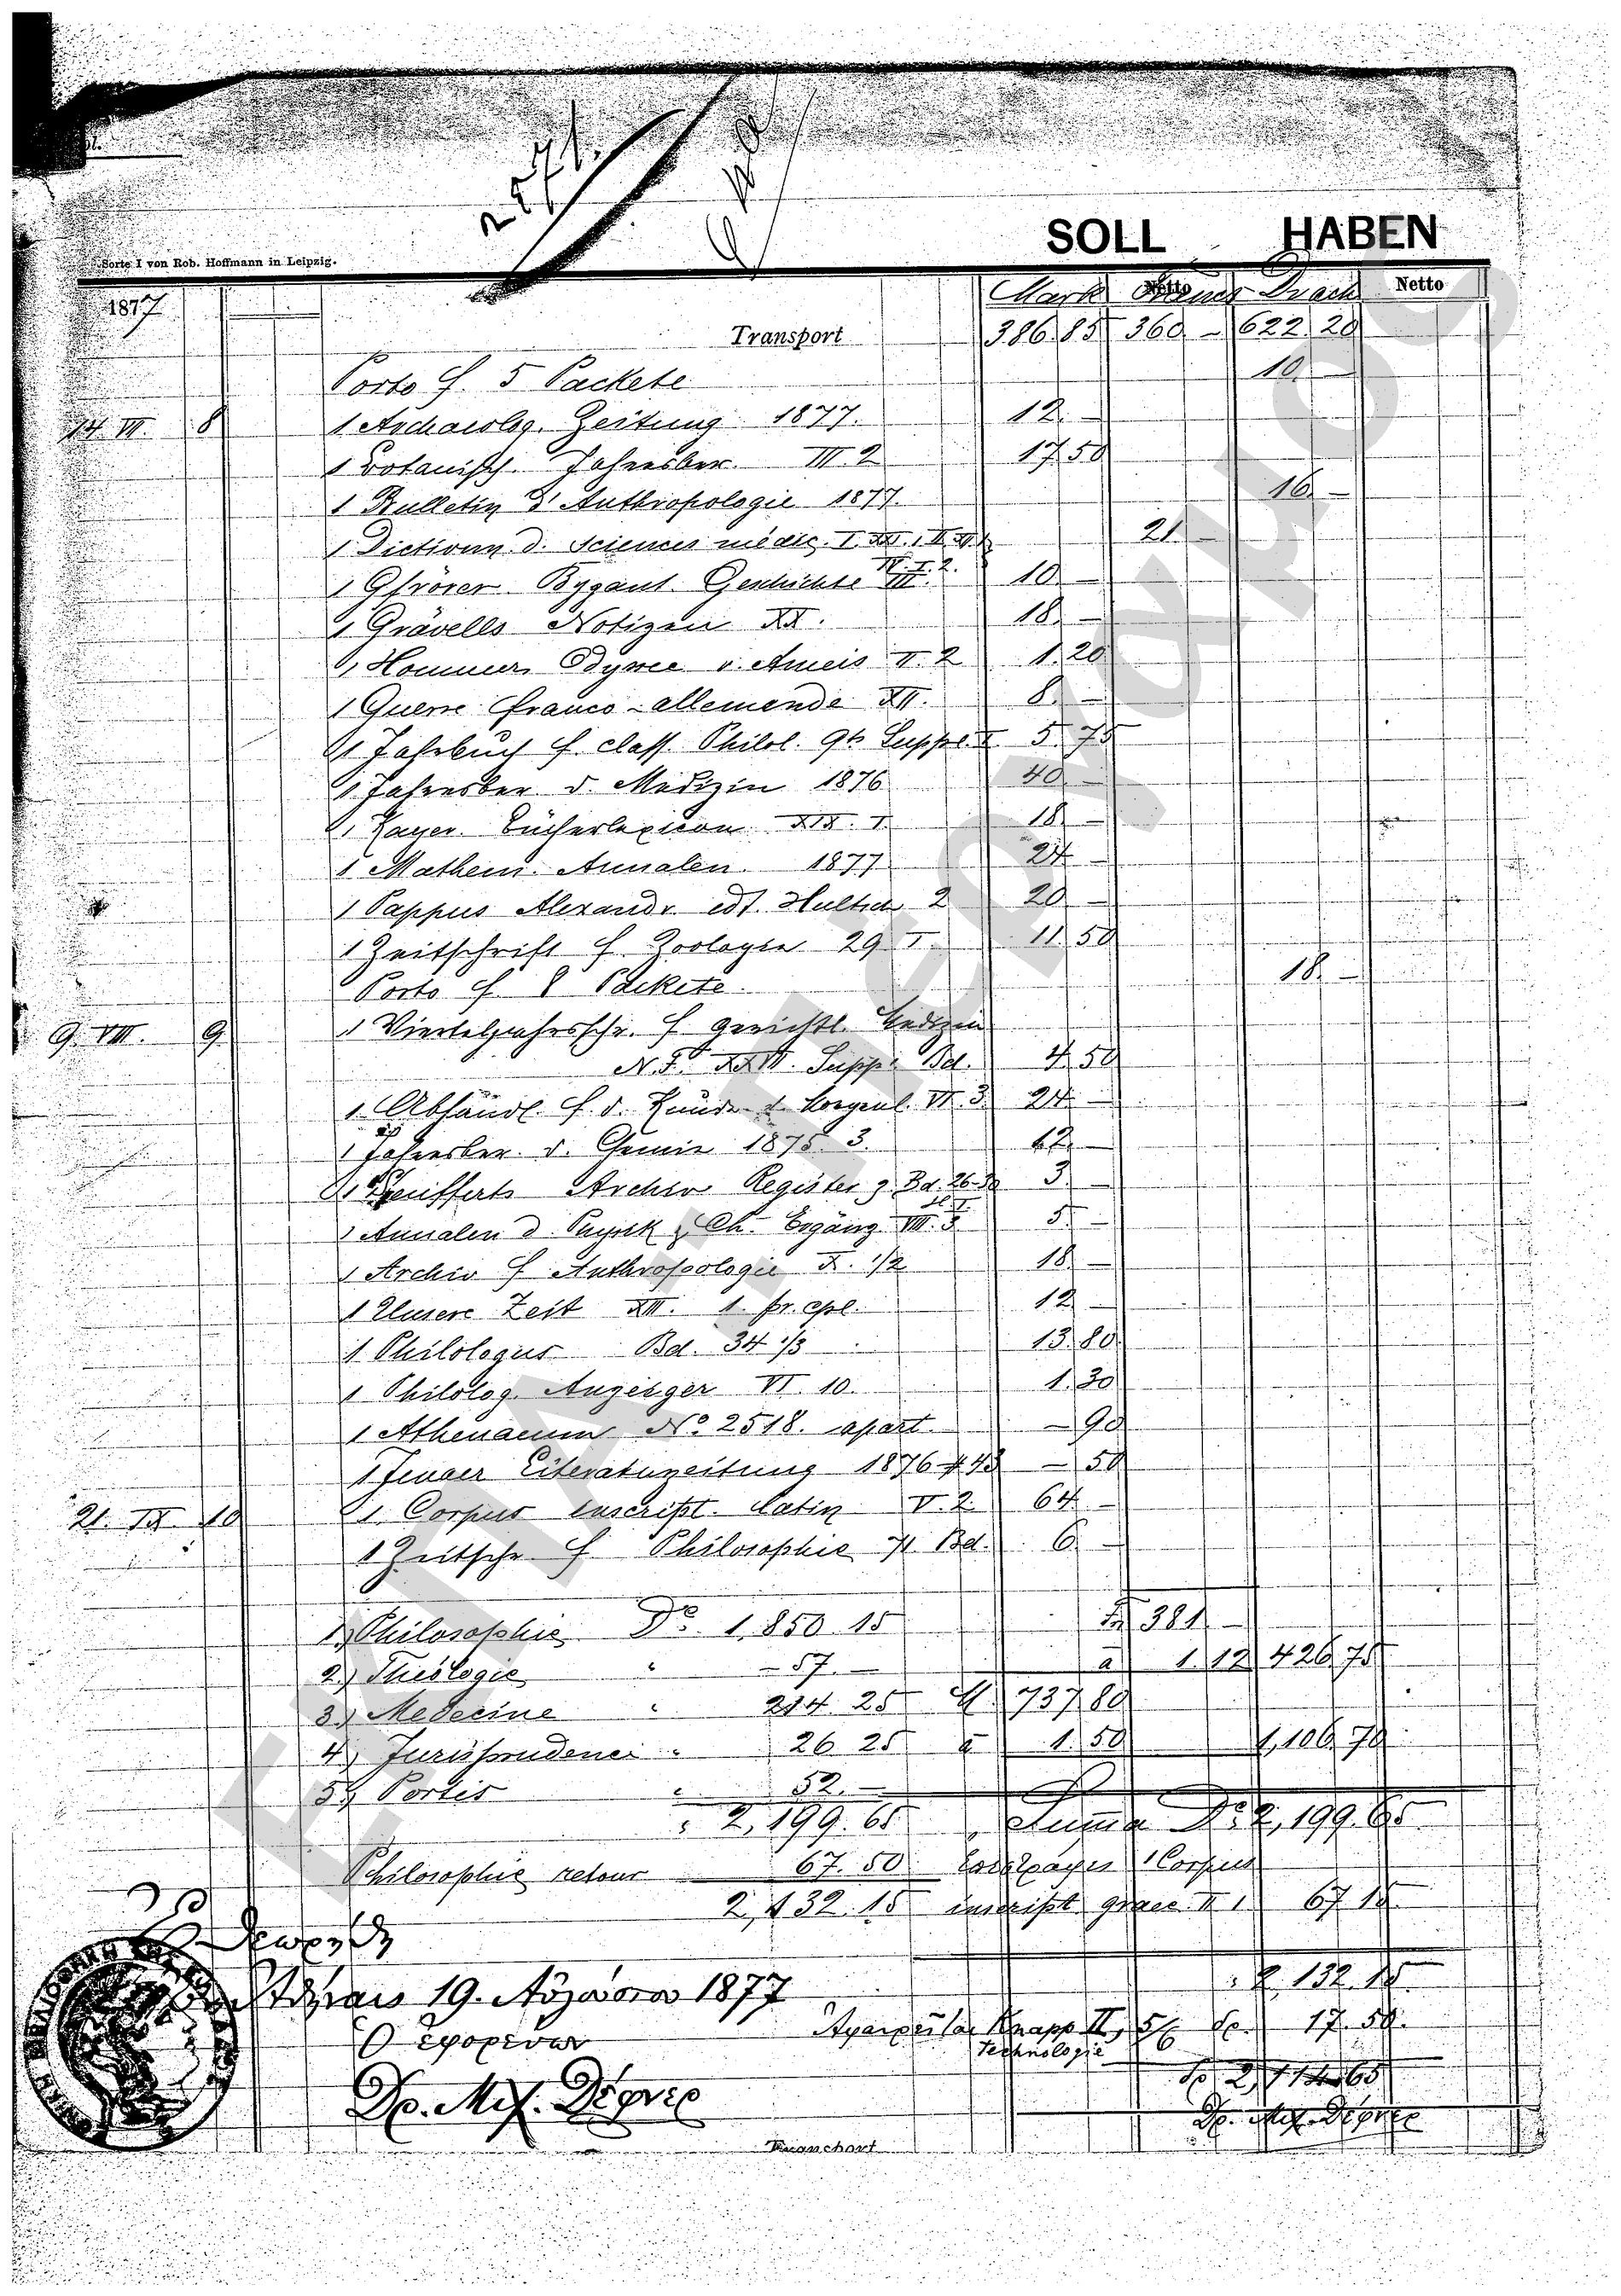 SOLL HABEN
Sorte I von Rob. Hoffmann in Leipzig.
Netto Netto
1877 Mark Francs Drach
Transport 386.85 360 — 622.20
Porto f. 5 Packete 10 —
14. VII. 8 1 Archaeolog. Zeitung 1877. 12. —
1 Botanisch. Jahresber. III. 2 17.50
1 Bulletin d'Anthropologie 1877. 16 —
1 Dictionn. d. Sciences médic. I. 21 —
1 Gfrörer Byzant. Geschichte III. 10 —
1 Grävells Notizen XX. 18. —
1 Homers Odyssee v. Ameis II. 2 1.20
1 Guerre franco-allemende XII. 8. —
1 Jahrbuch f. class. Philol. 9t. Suppl. I 5.75
1 Jahresber. d. Medizin 1876 40 —
1 Kayer Bücherlexicon XIX. I. 18 —
1 Mathem. Annalen. 1877 24 —
1 Pappus Alexandr. edt. Hultsch 2 20 —
1 Zeitschrift f. Zoologie 29 I. 11.50
Porto f. 8 Packete. 18. —
9. VIII. 9. 1 Vierteljahrsschr. f. gerichtl. Medizin
N. F. Suppl. Bd. 4.50
1 Abhandl. f. d. Kunde d. Morgenl. VI. 3. 24 —
1 Jahresber. d. Chemie 1875. 3. 12 —
1 Seufferts Archiv Register z. Bd. 26-30 3. —
1 Annalen d. Physik & Ch. Ergänz. VIII. 3 5. —
1 Archiv f. Anthropologie X. 1/2 18. —
1 Unsere Zeit XIII. 1. pr. cpl. 12 —
1 Philologus Bd. 34 1/3 13.80
1 Philolog. Anzeiger VI. 10. 1.30
1 Athenaeum No. 2518. apart. — 90
1 Jenaer Literaturzeitung 1876 — 50
21. IX. 10 1 Corpus inscript. latin. V. 2. 64 —
1 Zeitschr. f. Philosophie 71 Bd. 6. —
1) Philosophie Dr. 1,850 15 381 —
2) Theologie " — 57. — à 1.12 426.75
3) Medecine " 214 25 M. 737.80
4) Jurisprudence " 26 25 à 1.50 1,106.70
5) Portis " 52. —
" 2,199.65 Summa Dr. 2,199.65
Philosophie retour 67.50 1 Corpus
2,132.15 inscript. graec. II 1. 67.15
2,132.15
19. 1877
Knapp II, 17.50
Technologie
Ὁ ἐφορεύων
Transport